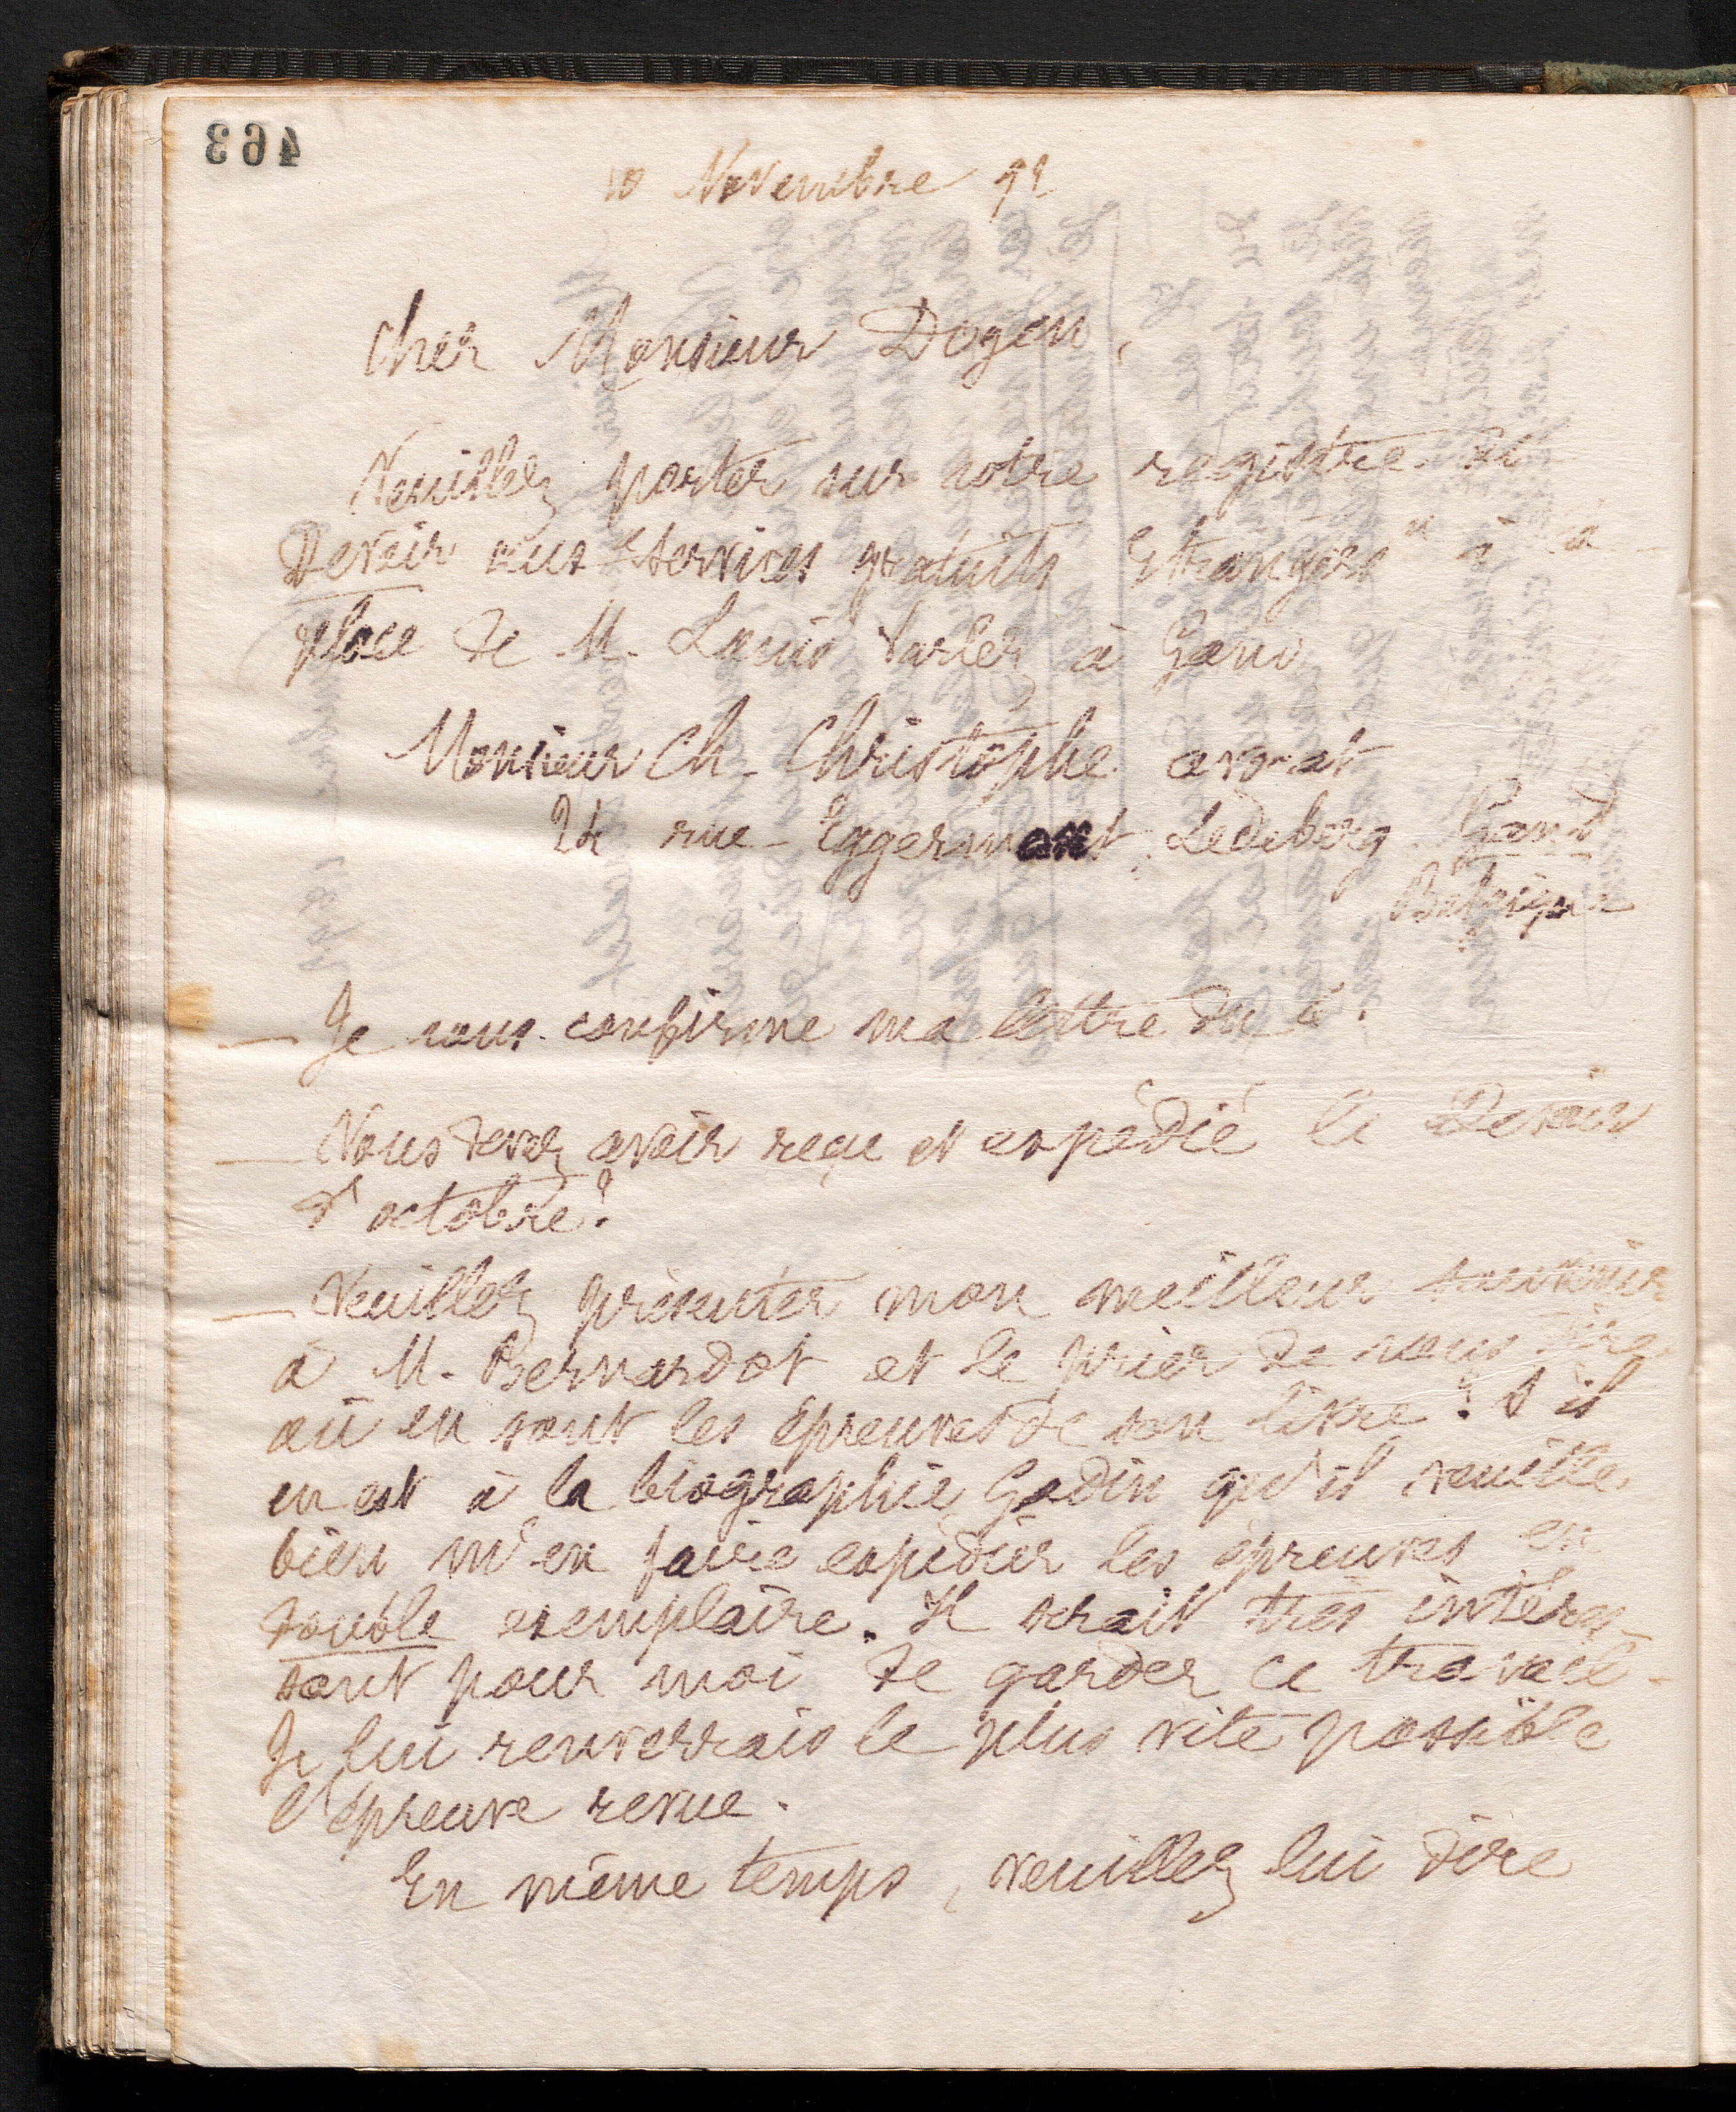 463
10 Novembre 92
Cher Monsieur Doyen,
Veuillez porter sur votre registre du
Devoir aux "Services gratuits Étrangers" à la
place de M. Louis Varlez à Gand
Monsieur Ch. Christophe avocat
24 rue Eggermont, Ledeberg Gand
Belgique
— Je vous confirme ma lettre du
— Vous devez avoir reçu et expédié le Devoir
d'octobre?
— Veuillez présenter mon meilleur souvenir
à M. Bernardot et le prier de nous dire
où en sont les épreuves de son livre? S'il
en est à la biographie Godin qu'il veuille
bien m'en faire expédier les épreuves en
double exemplaire. Il serait très intéres-
sant pour moi de garder ce travail.
Je lui renverrais le plus vite possible
l'épreuve revue.
En même temps, veuillez lui dire